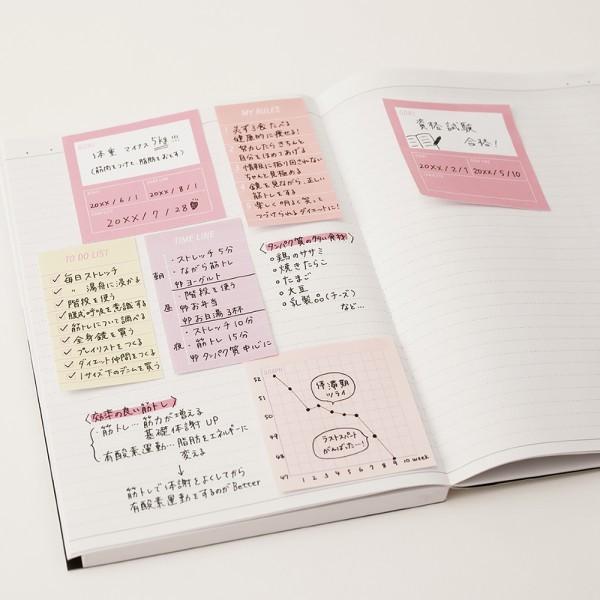 GOAL
体重 マイナス 5kg !!!
(筋肉をつけて、脂肪をおとす)
20XX / 6 / 1
20XX / 8 / 1
20XX / 7 / 28
MY RULES
必ず3食たべる
健康的に痩せる!
努力したらきちんと
自分をほめてあげる
情報に振り回されない
ちゃんと見極める
鏡を見ながら、正しい
筋トレをする
楽しく明るく笑って
つづけられるダイエットに!
GOAL
資格試験
合格!
20XX / 2 / 1
20XX / 5 / 10
TO DO LIST
✓ 毎日ストレッチ
✓ 〃 湯舟に浸かる
✓ 階段を使う
✓ 腹式呼吸を意識する
✓ 筋トレについて調べる
✓ 全身鏡を買う
✓ プレイリストをつくる
✓ ダイエット仲間をつくる
✓ 1サイズ下のデニムを買う
TIME LINE
・ストレッチ 5分
朝 ・ながら筋トレ
ヨーグルト
・階段を使う
昼 お弁当
お白湯 3杯
・ストレッチ 10分
夜 ・筋トレ 15分
タンパク質中心に
〈タンパク質の多い食材〉
○鶏のササミ
○焼きたらこ
○たまご
○大豆
○乳製品(チーズ)
など…
〈効率の良い筋トレ〉
・筋トレ… 筋力が増える
基礎代謝 UP
・有酸素運動… 脂肪をエネルギーに
変える
↓
筋トレで代謝をよくしてから
有酸素運動をするのがBetter
GRAPH
52
51
50
49
48
47
停滞期
ツライ
ラストスパート
がんばったー!
1 2 3 4 5 6 7 8 9 10 week